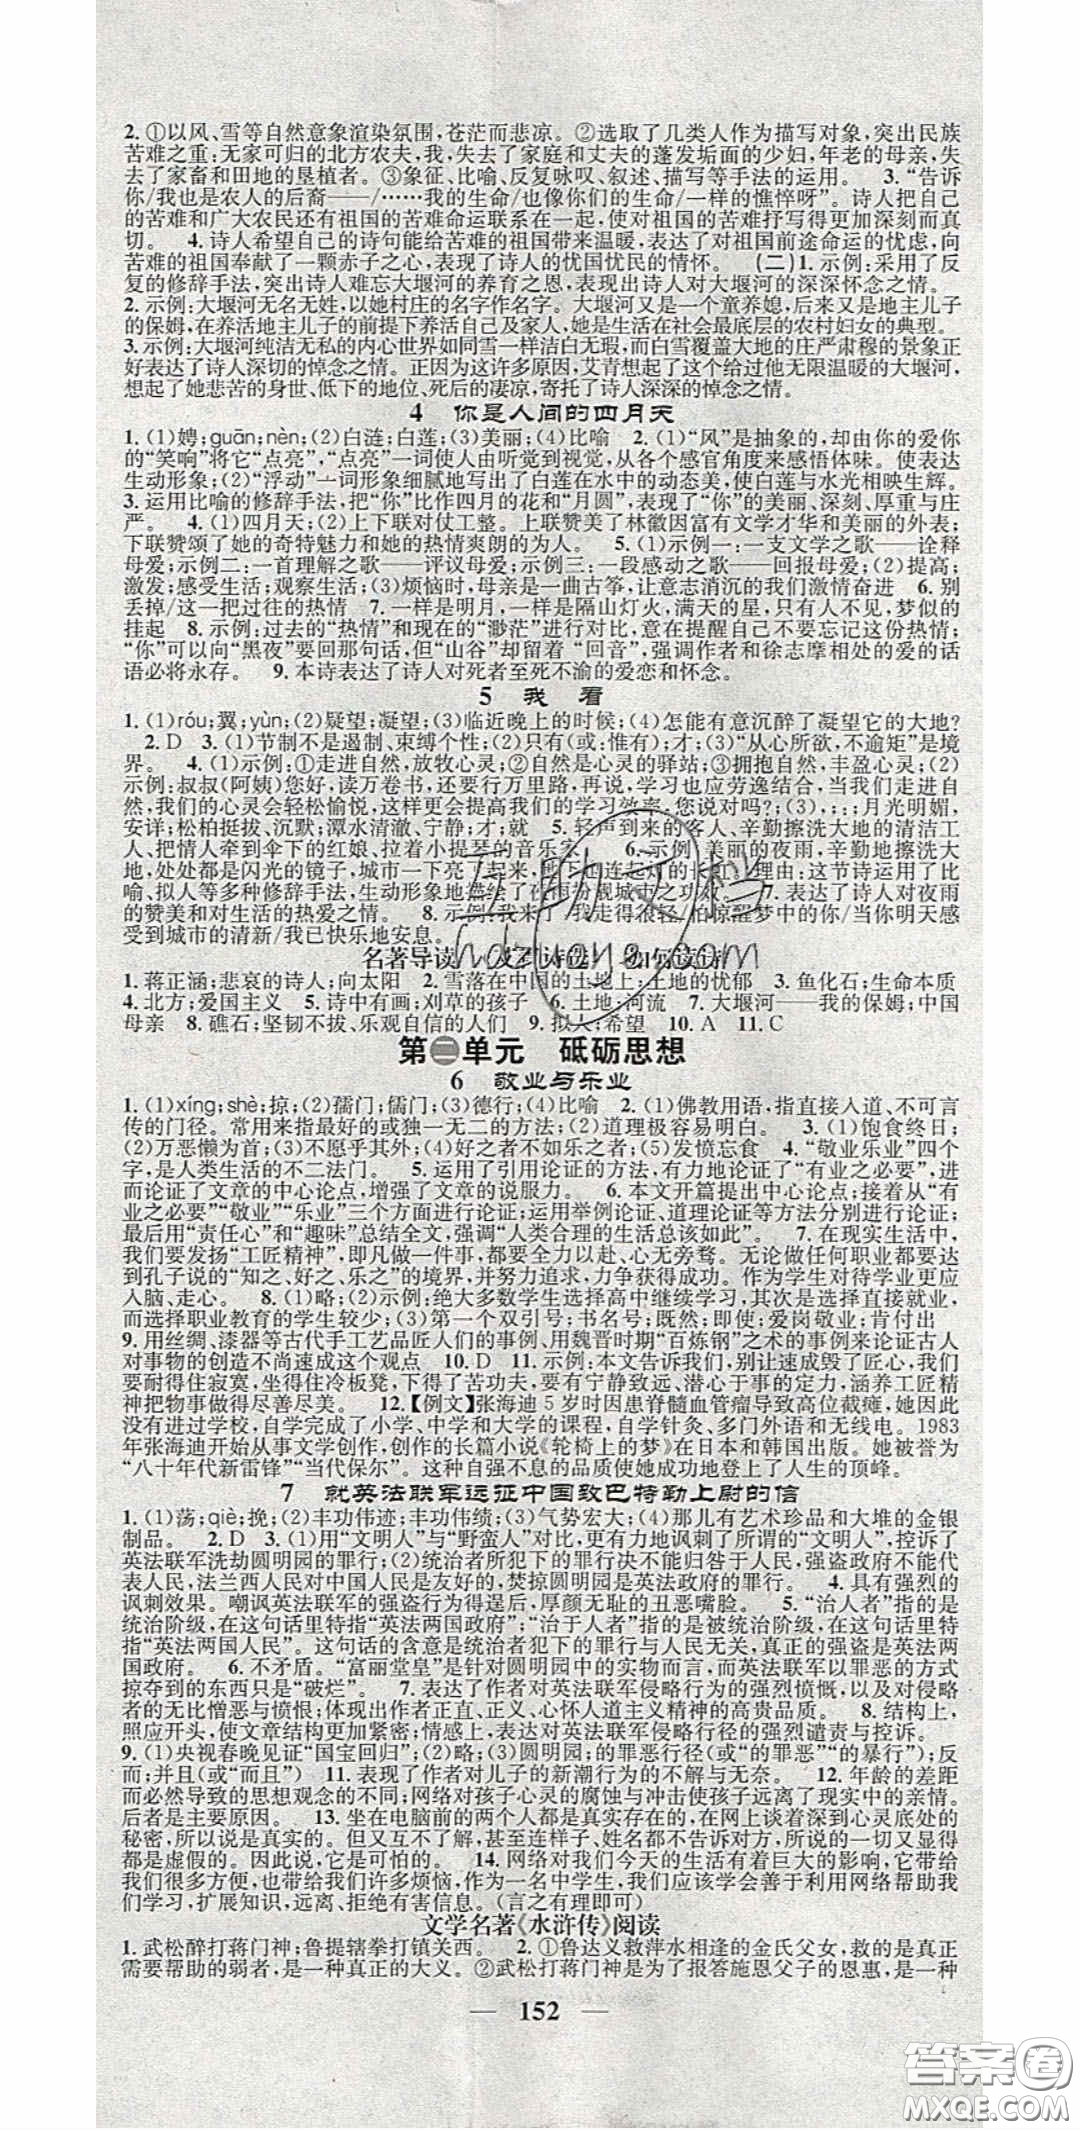 2. ①以风、雪等自然意象渲染氛围,苍茫而悲凉。②选取了几类人作为描写对象,突出民族
苦难之重:无家可归的北方农夫,我,失去了家庭和丈夫的蓬发垢面的少妇,年老的母亲,失
去了家畜和田地的垦植者。③象征、比喻、反复咏叹、叙述、描写等手法的运用。 3.“告诉
你/我也是农人的后裔——/……我的生命/也像你们的生命/一样的憔悴呀”。诗人把自己
的苦难和广大农民还有祖国的苦难命运联系在一起,使对祖国的苦难抒写得更加深刻而真
切。 4. 诗人希望自己的诗句能给苦难的祖国带来温暖,表达了对祖国前途命运的忧虑,向
苦难的祖国奉献了一颗赤子之心,表现了诗人的忧国忧民的情怀。 (二)1. 示例:采用了反
复的修辞手法,突出诗人难忘大堰河的养育之恩,表现出诗人对大堰河的深深怀念之情。
2. 示例:大堰河无名无姓,以她村庄的名字作名字。大堰河又是一个童养媳,后来又是地主儿子
的保姆,在养活地主儿子的前提下养活自己及家人,她是生活在社会最底层的农村妇女的典型。
3. 示例:大堰河纯洁无私的内心世界如同雪一样洁白无瑕,而白雪覆盖大地的庄严肃穆的景象正
好表达了诗人深切的悼念之情。正因为这许多原因,艾青想起了这个给过他无限温暖的大堰河,
想起了她悲苦的身世、低下的地位、死后的凄凉,寄托了诗人深深的悼念之情。
4 你是人间的四月天
1. (1)娉;guān;nèn;(2)白涟;白莲;(3)美丽;(4)比喻 2. (1)“风”是抽象的,却由你的爱你
的“笑响”将它“点亮”,“点亮”一词使人由听觉到视觉,从各个感官角度来感悟体味。使表达
生动形象;(2)“浮动”一词形象细腻地写出了白莲在水中的动态美,使白莲与水光相映生辉。
3. 运用比喻的修辞手法,把“你”比作四月的花和“月圆”,表现了“你”的美丽、深刻、厚重与庄
严。 4. (1)四月天;(2)上下联对仗工整。上联赞美了林徽因富有文学才华和美丽的外表;
下联赞颂了她的奇特魅力和她的热情爽朗的为人。 5. (1)示例一:一支文学之歌——诠释
母爱;示例二:一首理解之歌——评议母爱;示例三:一段感动之歌——回报母爱;(2)提高;
激发;感受生活;观察生活;(3)烦恼时,母亲是一曲古筝,让意志消沉的我们激情奋进 6. 别
丢掉/这一把过往的热情 7. 一样是明月,一样是隔山灯火,满天的星,只有人不见,梦似的
挂起 8. 示例:过去的“热情”和现在的“渺茫”进行对比,意在提醒自己不要忘记这份热情;
“你”可以向“黑夜”要回那句话,但“山谷”却留着“回音”,强调作者和徐志摩相处的爱的话
语必将永存。 9. 本诗表达了诗人对死者至死不渝的爱恋和怀念。
5 我 看
1. (1)róu;翼;yùn;(2)疑望;凝望;(3)临近晚上的时候;(4)怎能有意沉醉了凝望它的大地?
2. D 3. (1)节制不是遏制、束缚个性;(2)只有(或:惟有);才;(3)“从心所欲,不逾矩”是境
界。 4. (1)示例:①走进自然,放牧心灵;②自然是心灵的驿站;③拥抱自然,丰盈心灵;(2)
示例:叔叔(阿姨)您好,读万卷书,还要行万里路,再说,学习也应劳逸结合,当我们走进自
然,我们的心灵会轻松愉悦,这样更会提高我们的学习效率,您说对吗?;(3),;;;月光明媚,
安详;松柏挺拔、沉默;潭水清澈、宁静;才;就 5. 轻声到来的客人、辛勤擦洗大地的清洁工
人、把情人牵到伞下的红娘、拉着小提琴的音乐家 6. 示例:美丽的夜雨,辛勤地擦洗大
地,处处都是闪光的镜子,城市一下亮了起来,
喻、拟人等多种修辞手法,生动形象地描绘了夜雨扮靓城市之功效。 7. 表达了诗人对夜雨
的赞美和对生活的热爱之情。 8. 示例:我来了/我走得很轻/怕惊醒梦中的你/当你明天感
受到城市的清新/我已快乐地安息。
名著导读
1. 蒋正涵;悲哀的诗人;向太阳 2. 雪落在中国的土地上;土地的忧郁 3. 鱼化石;生命本质
4. 北方;爱国主义 5. 诗中有画;刈草的孩子 6. 土地;河流 7. 大堰河——我的保姆;中国
母亲 8. 礁石;坚韧不拔、乐观自信的人们 9. 拟人;希望 10. A 11. C
第二单元 砥砺思想
6 敬业与乐业
1. (1)xíng;shè;掠;(2)孺门;儒门;(3)德行;(4)比喻 2. (1)佛教用语,指直接入道、不可言
传的门径。常用来指最好的或独一无二的方法;(2)道理极容易明白。 3. (1)饱食终日;
(2)万恶懒为首;(3)不愿尽其力;(4)好之者不如乐之者;(5)发愤忘食 4.“敬业乐业”四个
字,是人类生活的不二法门。 5. 运用了引用论证的方法,有力地论证了“有业之必要”,进
而论证了文章的中心论点,增强了文章的说服力。 6. 本文开篇提出中心论点;接着从“有
业之必要”“敬业”“乐业”三个方面进行论证,运用举例论证、道理论证等方法分别进行论证;
最后用“责任心”和“趣味”总结全文,强调“人类合理的生活总该如此”。 7. 在现实生活中,
我们要发扬“工匠精神”,即凡做一件事,都要全力以赴、心无旁骛。无论做任何职业都要达
到孔子说的“知之、好之、乐之”的境界,并努力创新,力争获得成功。作为学生对待学业更应
入脑、走心。 8. (1)略;(2)示例:绝大多数学生选择高中继续学习,其次是选择直接就业,
而选择职业教育的学生较少;(3)第一个双引号;书名号;既然;即使;爱岗敬业;肯付出
9. 用丝绸、漆器等古代手工艺品匠人们的事例、用魏晋时期“百炼钢”之术的事例来论证古人
对事物的创造不尚速成这个观点 10. D 11. 示例:本文告诉我们,别让速成毁了匠心,我们
要耐得住寂寞,坐得住冷板凳,下得了苦功夫,要有宁静致远、潜心于事的定力,涵养工匠精
神把物事做得尽善尽美。 12.【例文】张海迪5岁时因患脊髓血管瘤导致高位截瘫,她因此
没有进过学校,自学完成了小学、中学和大学的课程,自学针灸、多门外语和无线电。1983
年张海迪开始从事文学创作,创作的长篇小说《轮椅上的梦》在日本和韩国出版。她被誉为
“八十年代新雷锋”“当代保尔”。这种自强不息的品质使她成功地登上了人生的顶峰。
7 就英法联军远征中国致巴特勒上尉的信
1. (1)荡;qiè;挽;(2)丰功伟迹;丰功伟绩;(3)气势宏大;(4)那儿有艺术珍品和大堆的金银
制品。 2. D 3. (1)用“文明人”与“野蛮人”对比,更有力地讽刺了所谓的“文明人”,控诉了
英法联军洗劫圆明园的罪行;(2)统治者所犯下的罪行决不能归咎于人民,强盗政府不能代
表人民,法兰西人民对中国人民是友好的,焚掠圆明园是英法政府的罪行。 4. 具有强烈的
讽刺效果。嘲讽英法联军的强盗行为得逞后,厚颜无耻的丑恶嘴脸。 5.“治人者”指的是
统治阶级,在这句话里特指“英法两国政府”;“治于人者”指的是被统治阶级,在这句话里特
指“英法两国人民”。这句话的含意是统治者犯下的罪行与人民无关,真正的强盗是英法两
国政府。 6. 不矛盾。“富丽堂皇”是针对圆明园中的实物而言,而英法联军以罪恶的方式
掠夺到的东西只是“破烂”。 7. 表达了作者对英法联军侵略行为的强烈愤慨,以及对侵略
者的无比憎恶与愤恨;体现出作者正直、正义、心怀人道主义精神的高贵品质。 8. 结构上,
照应开头,使文章结构更加紧密;情感上,表达对英法联军侵略行径的强烈谴责与控诉。
9. (1)央视春晚见证“国宝回归”;(2)略;(3)圆明园;的罪恶行径(或“的罪恶”“的暴行”);反
而;并且(或“而且”) 11. 表现了作者对儿子的新潮行为的不解与无奈。 12. 年龄的差距
而必然导致的思想观念的不同;网络对孩子心灵的腐蚀与冲击使孩子远离了现实中的亲情。
后者是主要原因。 13. 坐在电脑前的两个人都是真实存在的,在网上谈着深到心灵底处的
秘密,所以说是真实的。但又互不了解,甚至连样子、姓名都不告诉对方,所说的一切又显得
都是虚假的。因此说,它是可怕的。 14. 网络对我们今天的生活有着巨大的影响,它给我们带
来方便,也带给我们许多烦恼,作为一名中学生,我们应该学会善于利用网络帮助我
们学习,扩展知识,远离、拒绝有害信息。(言之有理即可)
文学名著《水浒传》阅读
1. 武松醉打蒋门神;鲁提辖拳打镇关西。 2. ①鲁达义救萍水相逢的金氏父女,救的是真正
需要帮助的弱者,是一种真正的大义。②武松打蒋门神是为了报答施恩父子的恩惠,是一种
— 152 —
答案圈
MXQE.COM